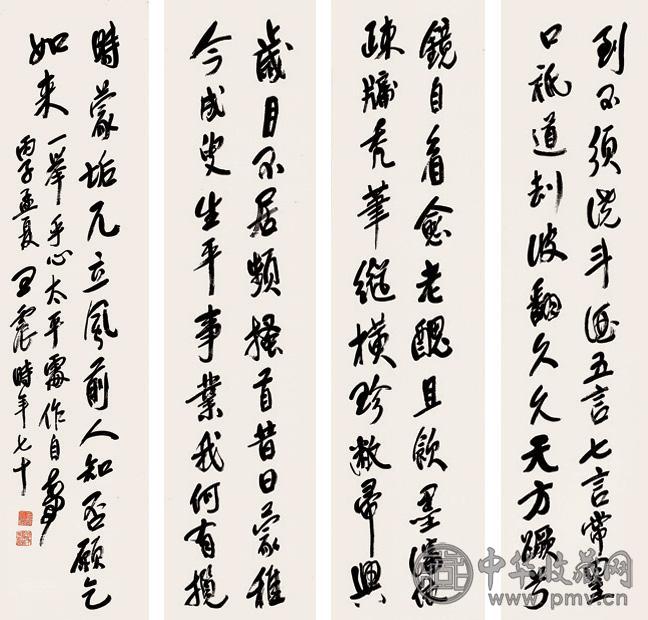 到不須澆斗酒五言七言常
口祇道劫波翻久久天方蹶兮
鏡自看愈老醜且飲墨瀋
疎牖禿筆縱橫珍敝帚興
歲月不居頻搔首昔日蒙稚
今成叟生平事業我何有攬
時蒙垢兀立風前人知否願乞
如来一舉手心太平作自壽
丙子孟夏王震時年七十
中华收藏网
www.pmv.cn